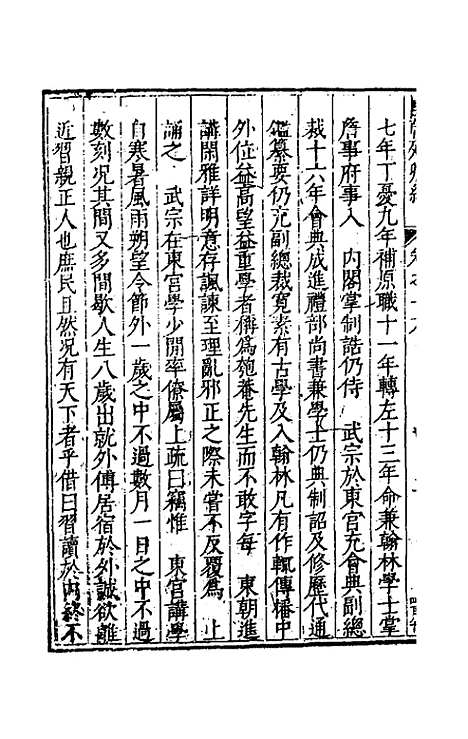 七年丁憂九年補原職十一年轉左十三年命兼翰林學士掌
詹事府事入　內閣掌制誥仍侍　武宗於東宮充會典副總
裁十六年會典成進禮部尚書兼學士仍典制詔及修歷代通
鑑纂要仍充副總裁寬素有古學及入翰林凡有作輒傳播中
外位益高望益重學者稱為匏菴先生而不敢字每　東朝進
講閑雅詳明意存諷諫至理亂邪正之際未嘗不反覆為　上
誦之　武宗在東宮學少間率僚屬上疏曰竊惟　東宮講學
自寒暑風雨朔望令節外一歲之中不過數月一日之中不過
數刻况其間又多間歇人生八歲出就外傅居宿於外誠欲離
近習親正人也庶民且然况有天下者乎借曰習讀於內終不